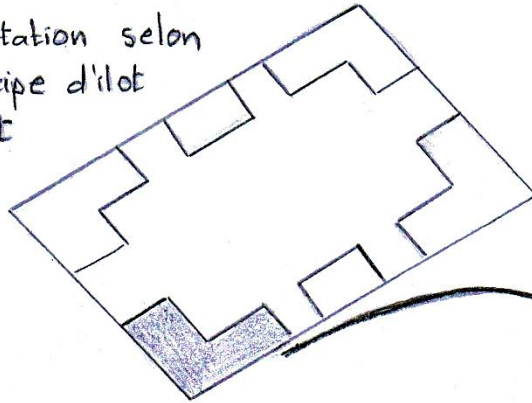 tation selon
cipe d'ilot
t